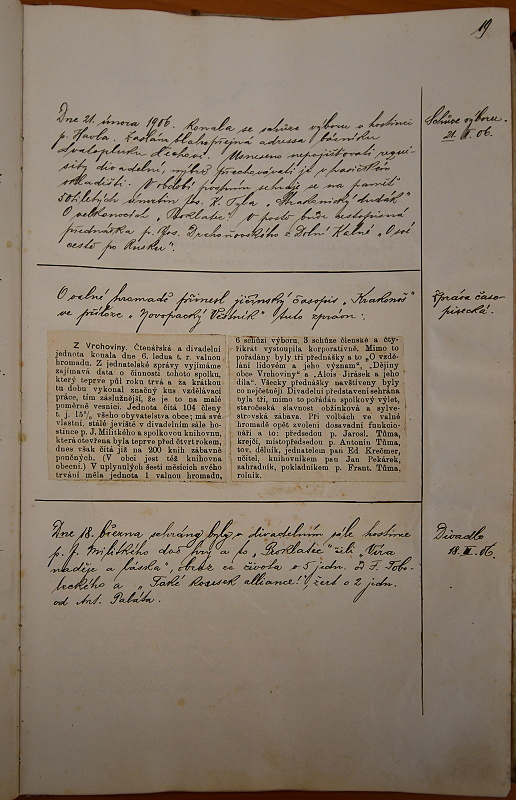 19
Dne 21. února 1906. konala se schůze výboru v hostinci
p. Havla. Zaslán blahopřejná adressa básníku
Svatopluku Čechovi. Usneseno nepojišťovati requi-
sity divadelní, nýbrž přechovávati je v hasičském
skladišti. V období postním sehraje se na paměť
50tiletých úmrtin Jos. K. Tyla "Strakonický dudák"
O velkonocích "Proklatec". V postě bude cestopisná
přednáška p. Jos. Drahoňovského z Dolní Kalné "O své
cestě po Rusku".
Schůze výboru.
21. II. 06.
O valné hromadě přinesl jičínský časopis "Krakonoš"
ve příloze "Novopacký Věstník" tuto zprávu:
Zpráva časo-
pisecká.
Z Vrchoviny. Čtenářská a divadelní
jednota konala dne 6. ledna t. r. valnou
hromadu. Z jednatelské zprávy vyjímáme
zajímavá data o činnosti tohoto spolku,
který teprve půl roku trvá a za krátkou
tu dobu vykonal značný kus vzdělávací
práce, tím záslužnější, že je to na malé
poměrně vesnici. Jednota čítá 104 členy
t. j. 15% všeho obyvatelstva obce; má své
vlastní, stálé jeviště v divadelním sále ho-
stince p. J. Militkého a spolkovou knihovnu,
která otevřena byla teprve před čtvrt rokem,
dnes však čítá již na 200 knih zábavně
poučných. (V obci jest též knihovna
obecní.) V uplynulých šesti měsících svého
trvání měla jednota 1 valnou hromadu,
6 schůzí výboru, 3 schůze členské a čty-
řikrát vystoupila korporativně. Mimo to
pořádány byly tři přednášky a to „O vzdě-
lání lidovém a jeho význam", „Dějiny
obce Vrchoviny" a „Alois Jirásek a jeho
díla". Všecky přednášky navštíveny byly
co nejčetněji. Divadelní představení sehrána
byla tři, mimo to pořádán spolkový výlet,
staročeská slavnost obžinková a sylve-
strovská zábava. Při volbách ve valné
hromadě opět zvoleni dosavadní funkcio-
náři a to: předsedou p. Jarosl. Tůma,
krejčí, místopředsedou p. Antonín Tůma,
tov. dělník, jednatelem pan Ed. Krečmer,
učitel, knihovníkem pan Jan Pekárek,
zahradník, pokladníkem p. Frant. Tůma,
rolník.
Dne 18. března sehrány byly v divadelním sále hostince
p. J. Militkého dvě hry a to "Proklatec" čili "Víra
naděje a láska", obraz ze života o 5 jedn. od F.
a "Také alliance!", žert o 2 jedn.
od Ant.
Divadlo
18. III. 06.